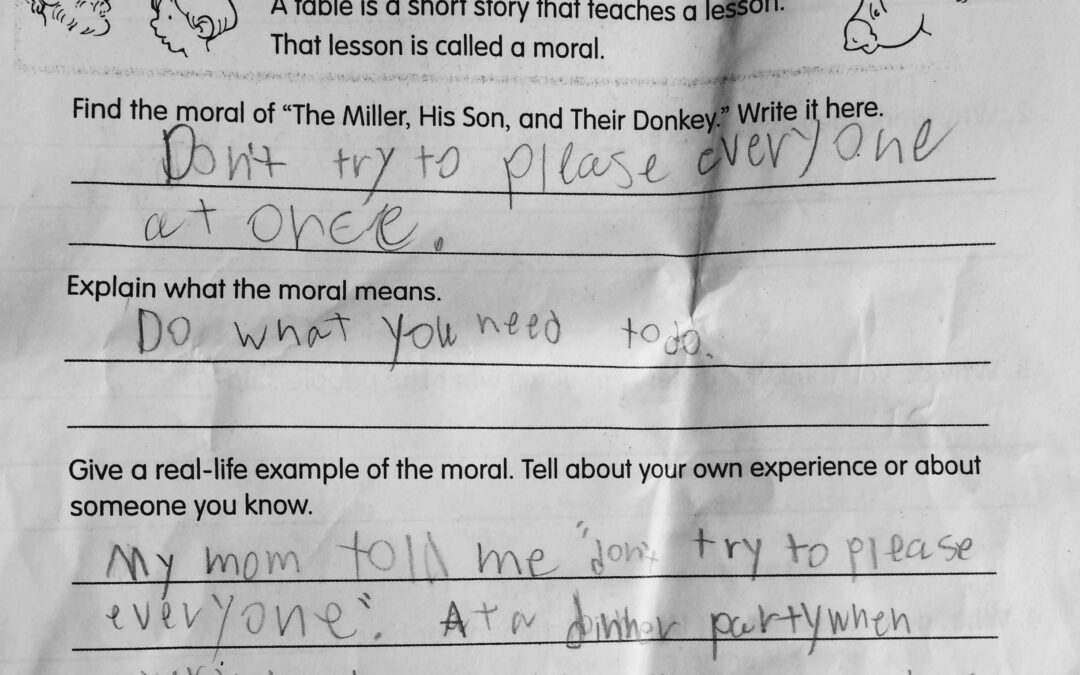 A fable is a short story that teaches a lesson.
That lesson is called a moral.
Find the moral of “The Miller, His Son, and Their Donkey.” Write it here.
Don't try to please everyone
at once.
Explain what the moral means.
Do what you need to do.
Give a real-life example of the moral. Tell about your own experience or about
someone you know.
My mom told me "don't try to please
everyone". At a dinner party when